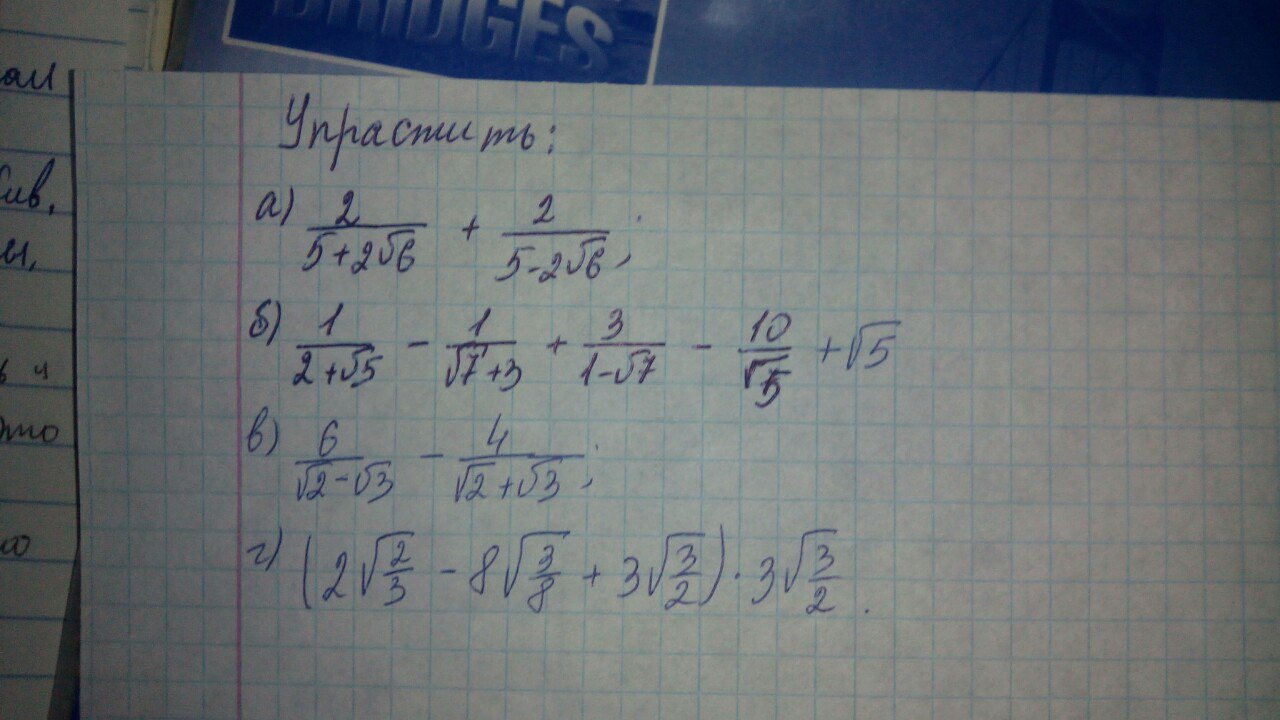 BRIDGES
Упрастить:
а) 2/(5+2√6) + 2/(5-2√6);
б) 1/(2+√5) - 1/(√7+3) + 3/(1-√7) - 10/√5 + √5
в) 6/(√2-√3) - 4/(√2+√3);
г) (2√(2/3) - 8√(3/8) + 3√(3/2)) · 3√(3/2).